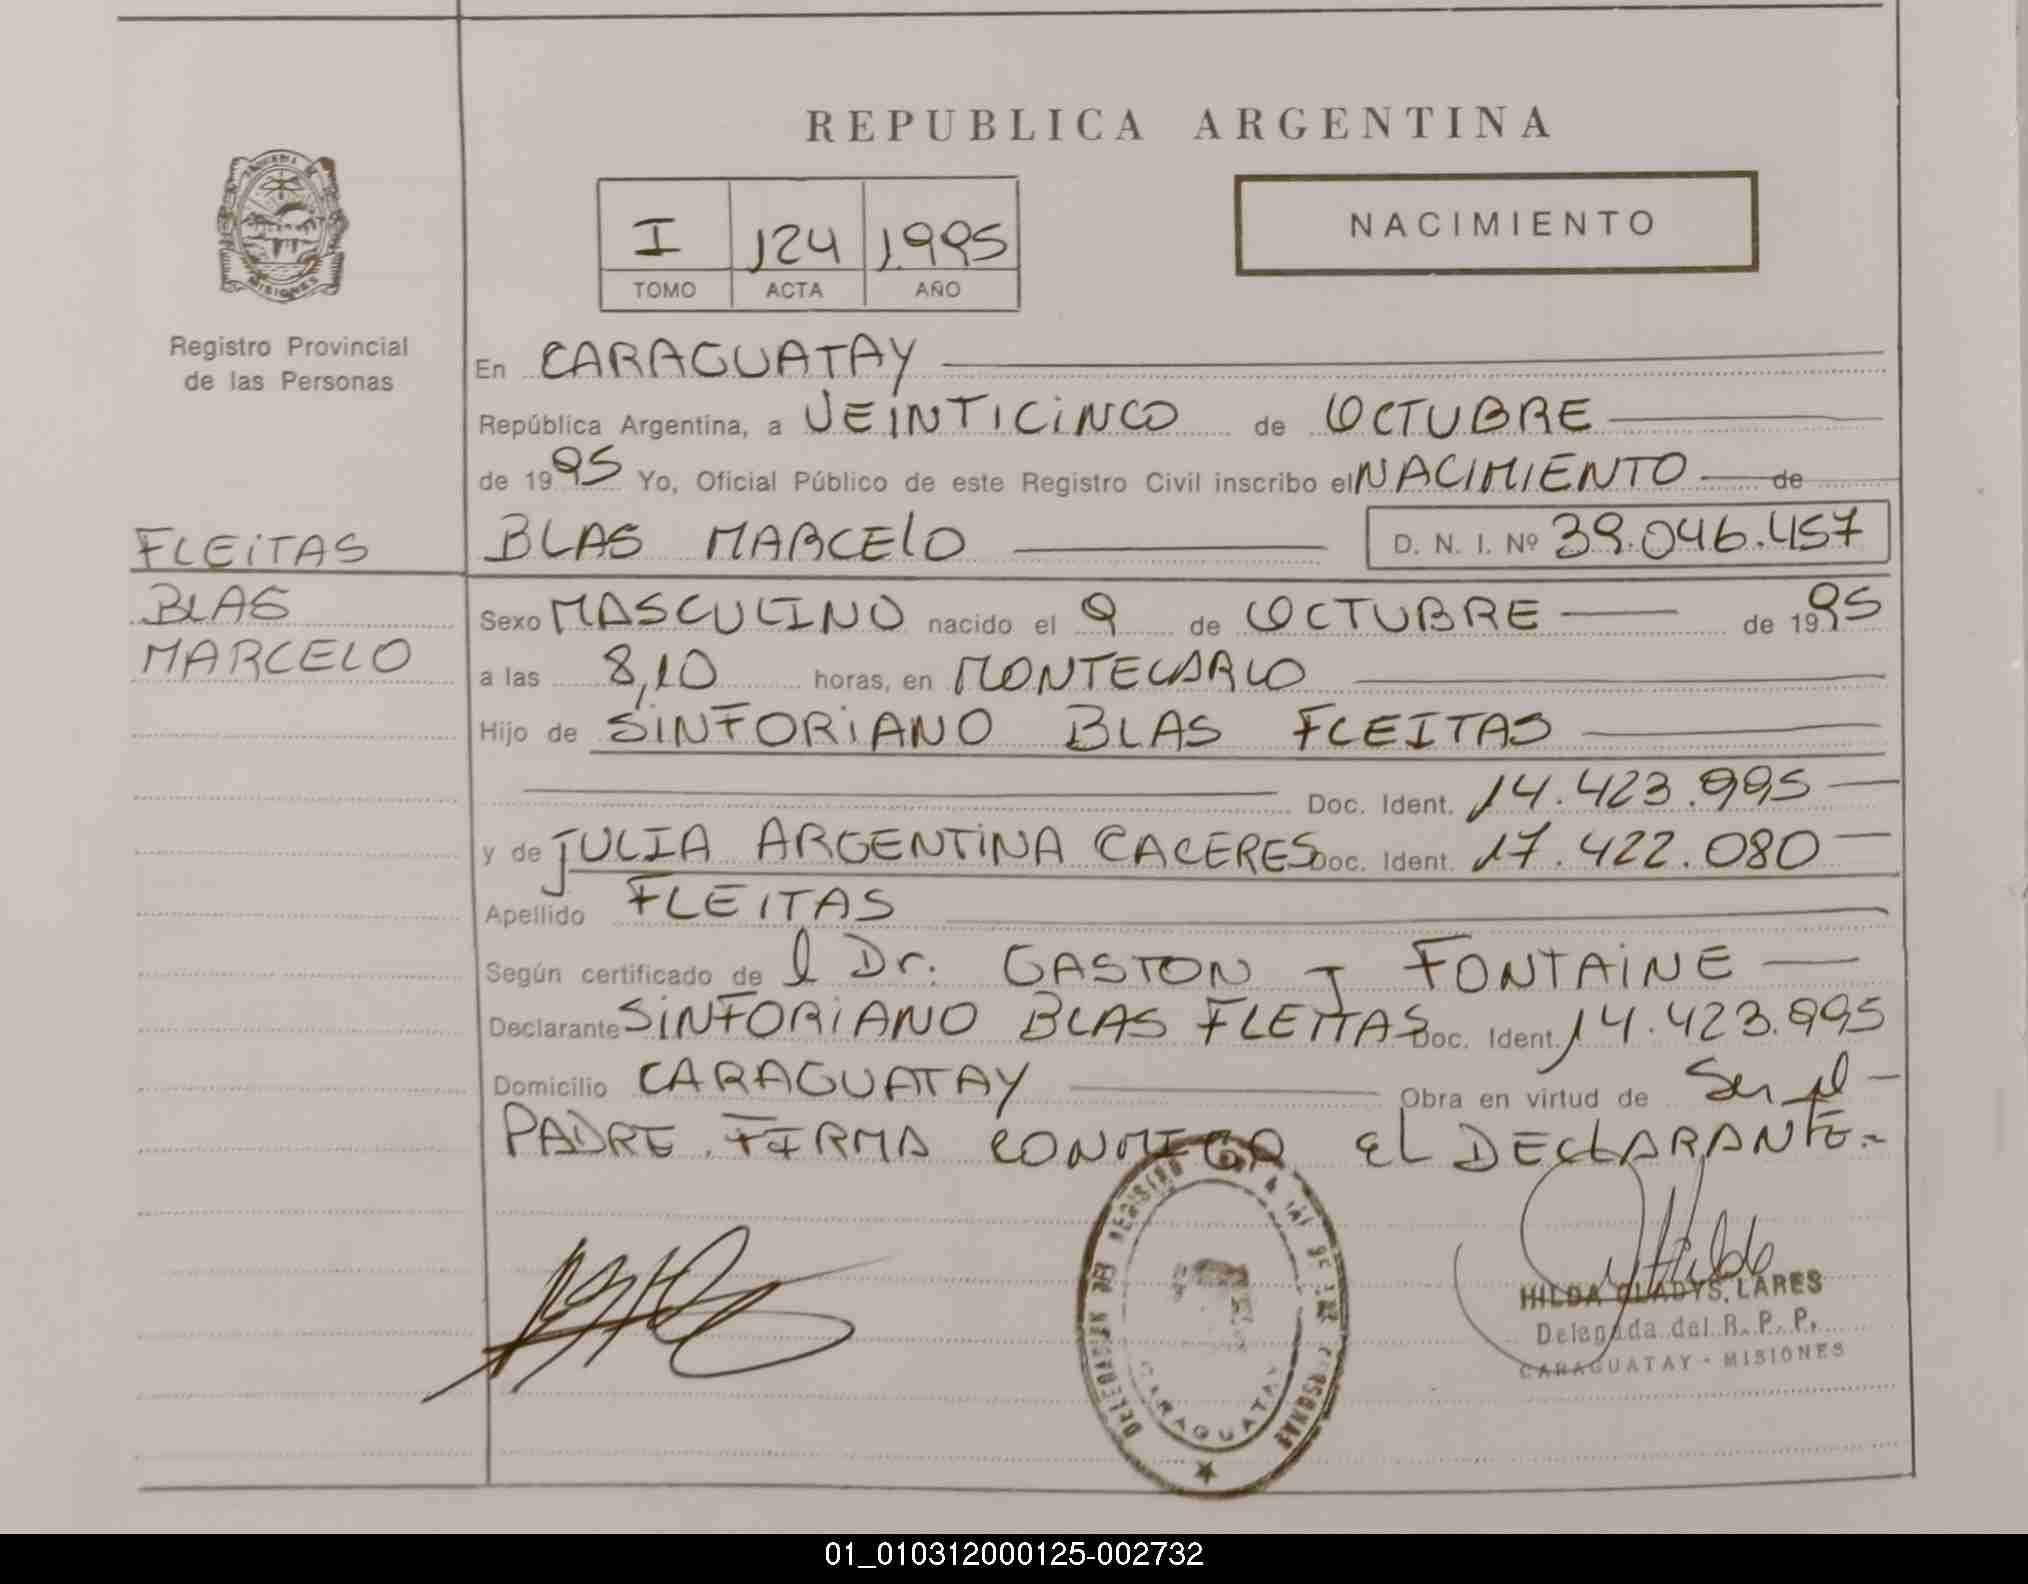 REPUBLICA ARGENTINA
I 124 1995
TOMO ACTA AÑO
NACIMIENTO
MISIONES
Registro Provincial
de las Personas
FLEITAS
BLAS
MARCELO
En CARAGUATAY
República Argentina, a VEINTICINCO de OCTUBRE
de 1995 Yo, Oficial Público de este Registro Civil inscribo el NACIMIENTO de
BLAS MARCELO D. N. I. Nº 39.046.457
Sexo MASCULINO nacido el 9 de OCTUBRE de 1995
a las 8,10 horas, en MONTECARLO
Hijo de SINFORIANO BLAS FLEITAS
Doc. Ident. 14.423.995
y de JULIA ARGENTINA CACERES Doc. Ident. 17.422.080
Apellido FLEITAS
Según certificado de l Dr. GASTON J FONTAINE
Declarante SINFORIANO BLAS FLEITAS Doc. Ident. 14.423.995
Domicilio CARAGUATAY Obra en virtud de Ser el
PADRE. FIRMA CONMIGO EL DECLARANTE.-
DELEGACION DEL REGISTRO DE LAS PERSONAS
CARAGUATAY
HILDA GLADYS LARES
Delegada del R. P. P.
CARAGUATAY - MISIONES
01_010312000125-002732